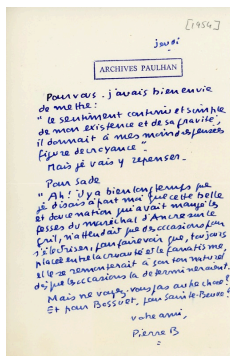 [1954]
jeudi
ARCHIVES PAULHAN
Pour vous. j'avais bien envie
de mettre :
" le sentiment continu et simple
de mon existence et de sa gravité,
il donnait à mes moindres pensées
figure de croyance".
Mais je vais y repenser_
Pour Sade
" Ah! il y a bien longtemps que
je disais à part moi que cette belle
et douce nation qui avait mangé les
fesses du maréchal d'Ancre sur le
gril, n'attendait que des occasions pour
s'électriser, pour faire voir que, toujours
placée entre la cruauté et le fanatisme,
elle se remonterait à son ton naturel
dès que les occasions la détermineraient.
Mais ne voyez-vous pas autre chose?
Et pour Bossuet, pour Sainte-Beuve?
votre ami,
Pierre B